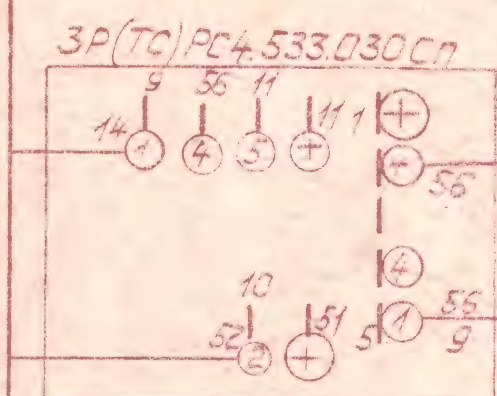 3Р(ТС)РС4.533.030Сп
9 56 11
14 1 4 5 + 11 1 +
+ 56
4
10
52 2 + 51 5 1 56
9